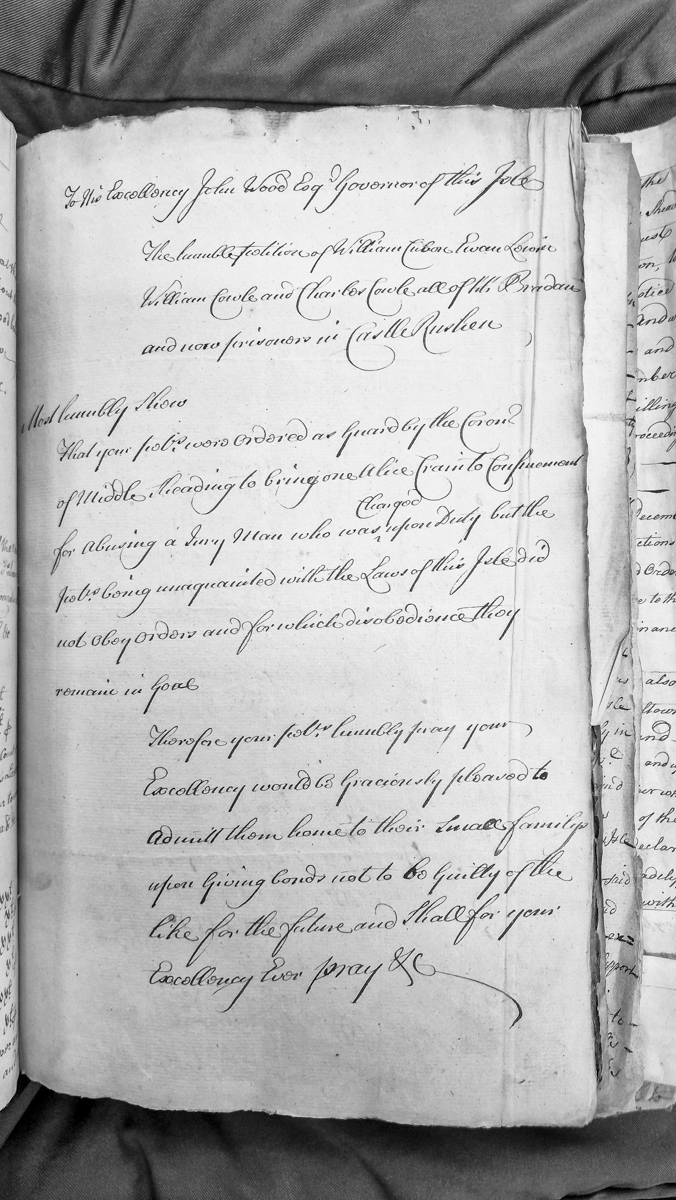 To His Excellency John Wood Esqr Governor of this Isle
The humble petition of William Cubon Ewan Lewin
William Cowle and Charles Cowle all of Kk Bradan
and now prisoners in Castle Rushen
Most humbly Show
That your petrs. were Ordered as Guard by the Coronr
of Middle Sheading to bring one Alice Crain to Confinement
for Abusing a Jury Man who was Charged upon Duty but the
petrs. being unaquainted with the Laws of this Isle did
not Obey Orders and for which disobedience they
remain in Goal
Therefore your petrs. humbly pray your
Excellency would be Graciously pleased to
Admitt them home to their Small familys
upon Giving bonds not to be Guilty of the
like for the future and Shall for your
Excellency Ever pray &c